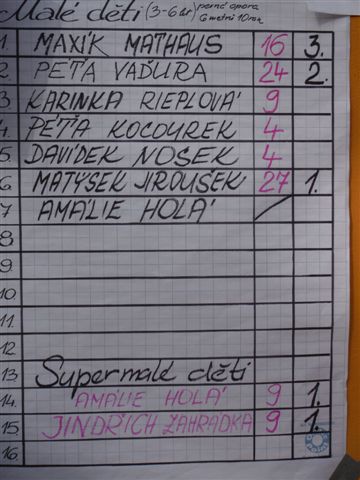 Malé děti (3-6 let) pevná opora
6 metrů 10 rok
1. MAXÍK MATHAUS 16 3.
2. PEŤA VAĎURA 24 2.
3 KARINKA RIEPLOVÁ 9
4. PÉŤA KOCOUREK 4
5. DAVÍDEK NOSEK 4
6 MATÝSEK JIROUŠEK 27 1.
7 AMÁLIE HOLÁ
8
9
10.
11.
12.
13. Supermalé děti
14. AMALIE HOLÁ 9 1.
15. JINDŘICH ZAHRÁDKA 9 1.
16.